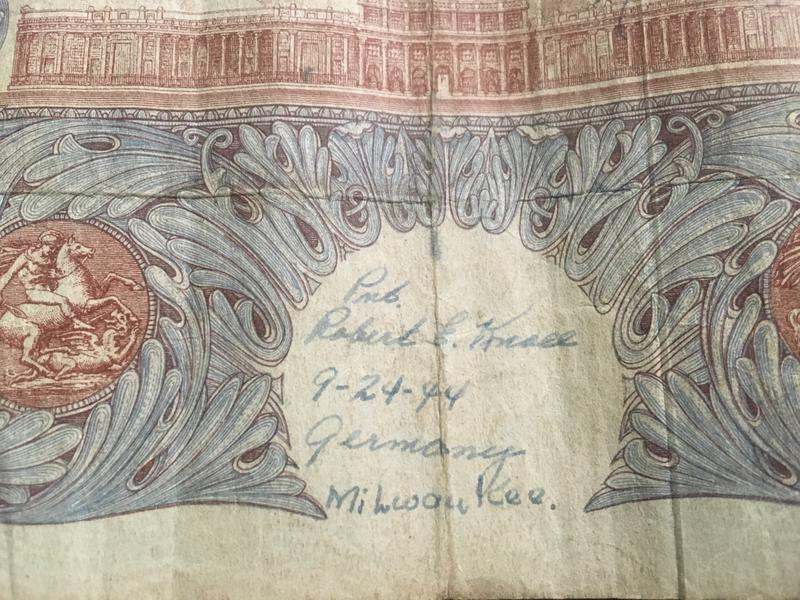 Pvt.
Robert E.
9-24-44
Germany
Milwaukee.